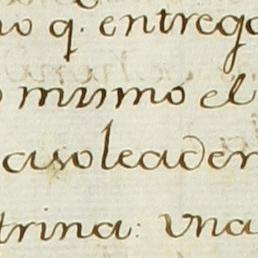 no q. entrega
o mismo el
asoleader
trina: una